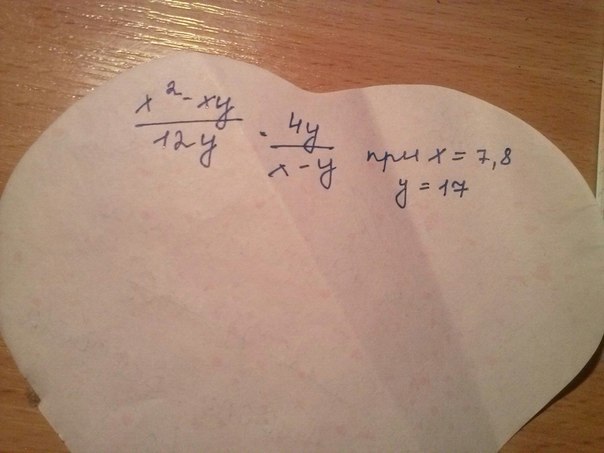 x² - xy / 12y · 4y / x - y при x = 7,8
y = 17